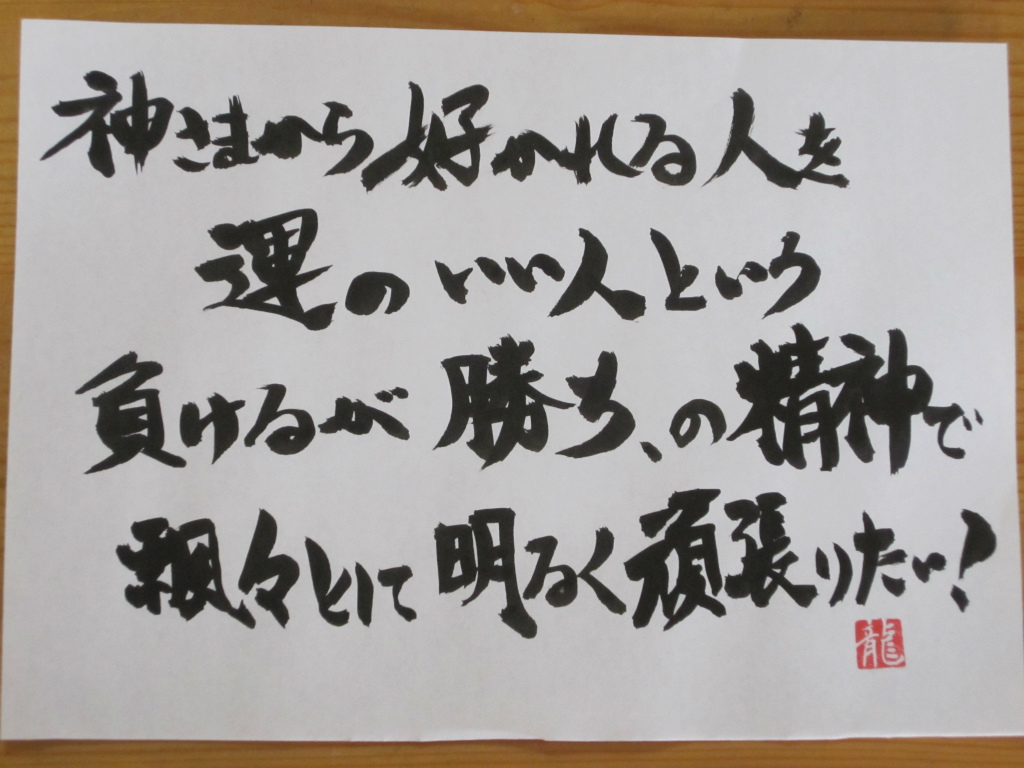 神さまから好かれる人を
運のいい人という
負けるが勝ち、の精神で
飄々として明るく頑張りたい!
龍